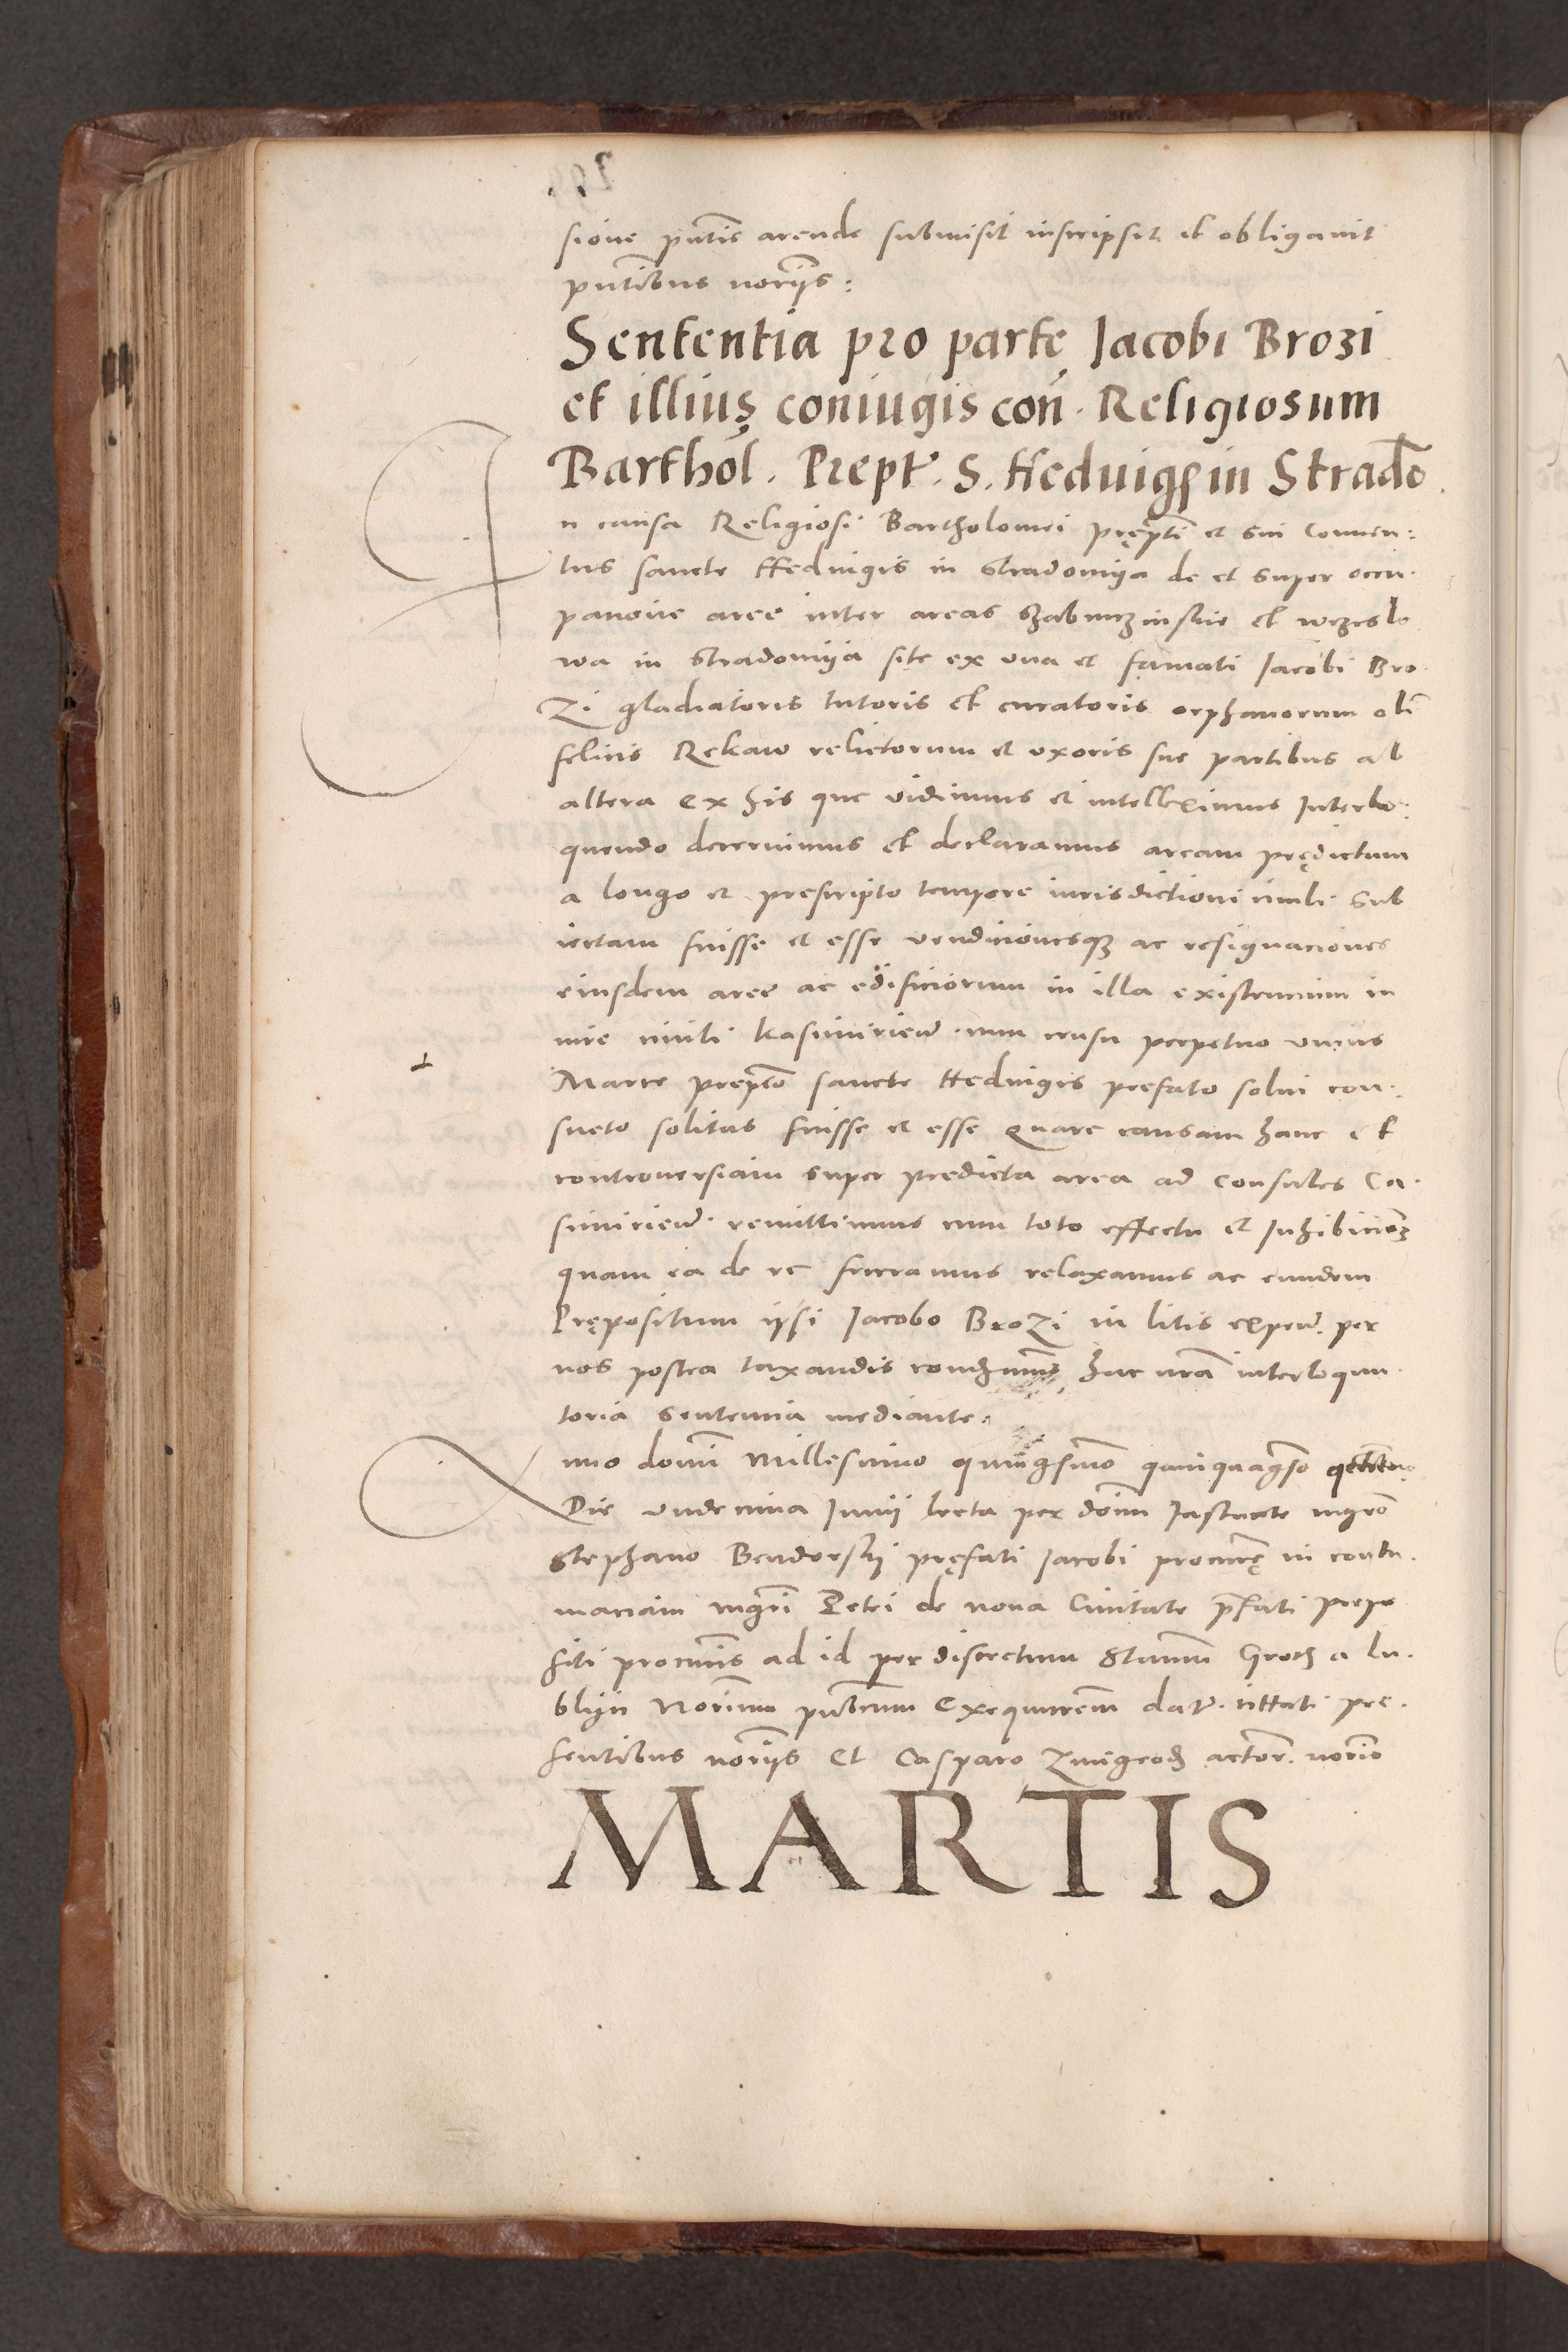 sione pñtis arende submisit inscripsit et obligavit
pñtibus noriis:
Sententia pro parte Jacobi Brozi
et illius coniugis coñ. Religiosum
Barthol. Prept. S. Hedvigis in Strado.
In causa Religiosi Bartholomei pręptĩ et sui Conven:
tus sancte Hedvigis in Stradomiia de et super occu.
pacione aree inter areas et
wa in Stradomiia site ex una et famati Jacobi Bro.
Zi gladiatoris tutoris et curatoris orphanorum olĩ
felicis Rekaw relictorum et uxoris sue partibus ab
altera ex his que vidimus et intelleximus Interlo:
quendo decernimus et declaramus aream prędictam
a longo et prescripto tempore iurisdictioni civili sub
iectam fuisse et esse vendicionesq3 ac resignaciones
eiusdem aree ac edificiorum in illa existencium in
iure civili Kasimirien̄. cum censu perpetuo unius
Marce prepto sancte Hedvigis prefato solvi con.
sueto solitas fuisse et esse Quare causam hanc et
controversiam super predicta area ad Consules Ca.
simirien̄. remittimus cum toto effectu et Inhibicionē
quam ea de re feceramus relaxamus ac eundem
Prępositum ipsi Jacobo BroZi in litis expen̄. per
nos postea taxandis condnam9 hac nrã interlocu.
toria Sententia mediante:
Anno domĩ Millesimo quingsmo quinquagso
Die undecima Junii lecta per dõm Instante mgro
Stephano Bendorskij pręfati Jacobi procurę in contu.
maciam mgri Petri de nova Civitate p̃fati prepo
siti procuris ad id per discretum Stanim Groch a Lu.
blijn Norium publicum Exequutorem dat. cittati pre.
sentibus noriis Et Casparo Zmigrod actor. norio
MARTIS